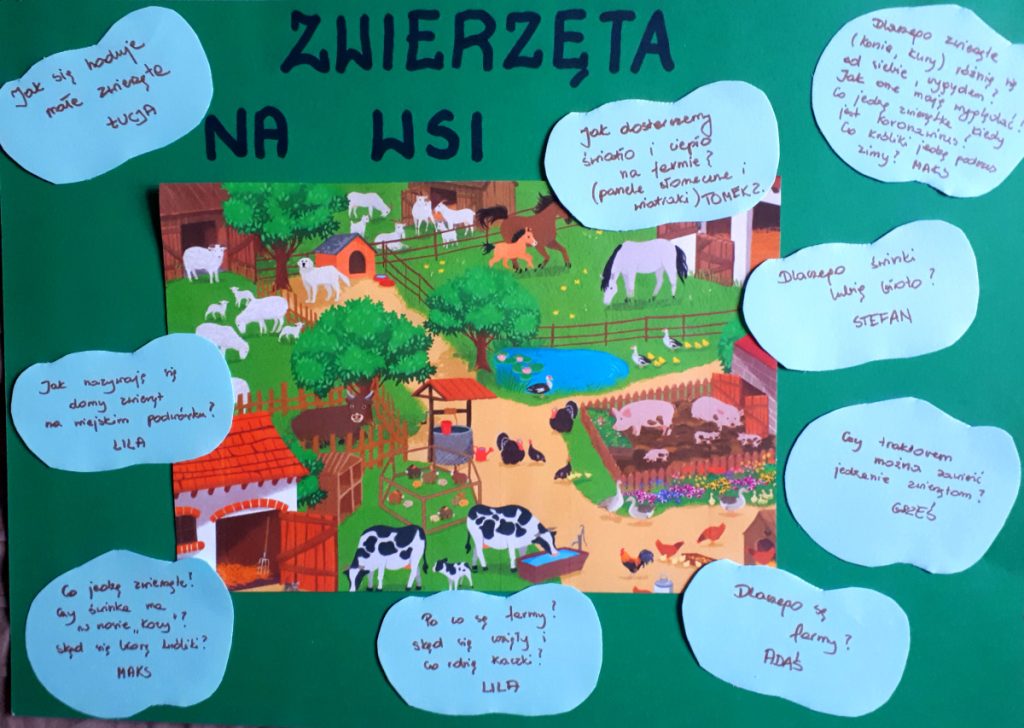 ZWIERZĘTA
NA WSI
Jak się hoduje
małe zwierzęta
ŁUCJA
Jak dostarczamy
światło i ciepło
na farmie?
(panele słoneczne i
wiatraki) TOMEK Z.
Dlaczego zwierzęta
(konie, kury) różnią się
od siebie wyglądem?
Jak one mają wyglądać?
Co jedzą zwierzątka, kiedy
jest koronawirus?
Co króliki jedzą podczas
zimy? MAKS
Dlaczego świnki
lubią błoto?
STEFAN
Jak nazywają się
domy zwierząt
na wiejskim podwórku?
LILA
Czy traktorem
można zawieźć
jedzenie zwierzętom?
GRZEŚ
Co jedzą zwierzęta?
Czy świnka ma
w nosie „kozy"?
skąd się biorą króliki?
MAKS
Po co są farmy?
skąd się wzięły i
co robią kaczki?
LILA
Dlaczego są
farmy?
ADAŚ